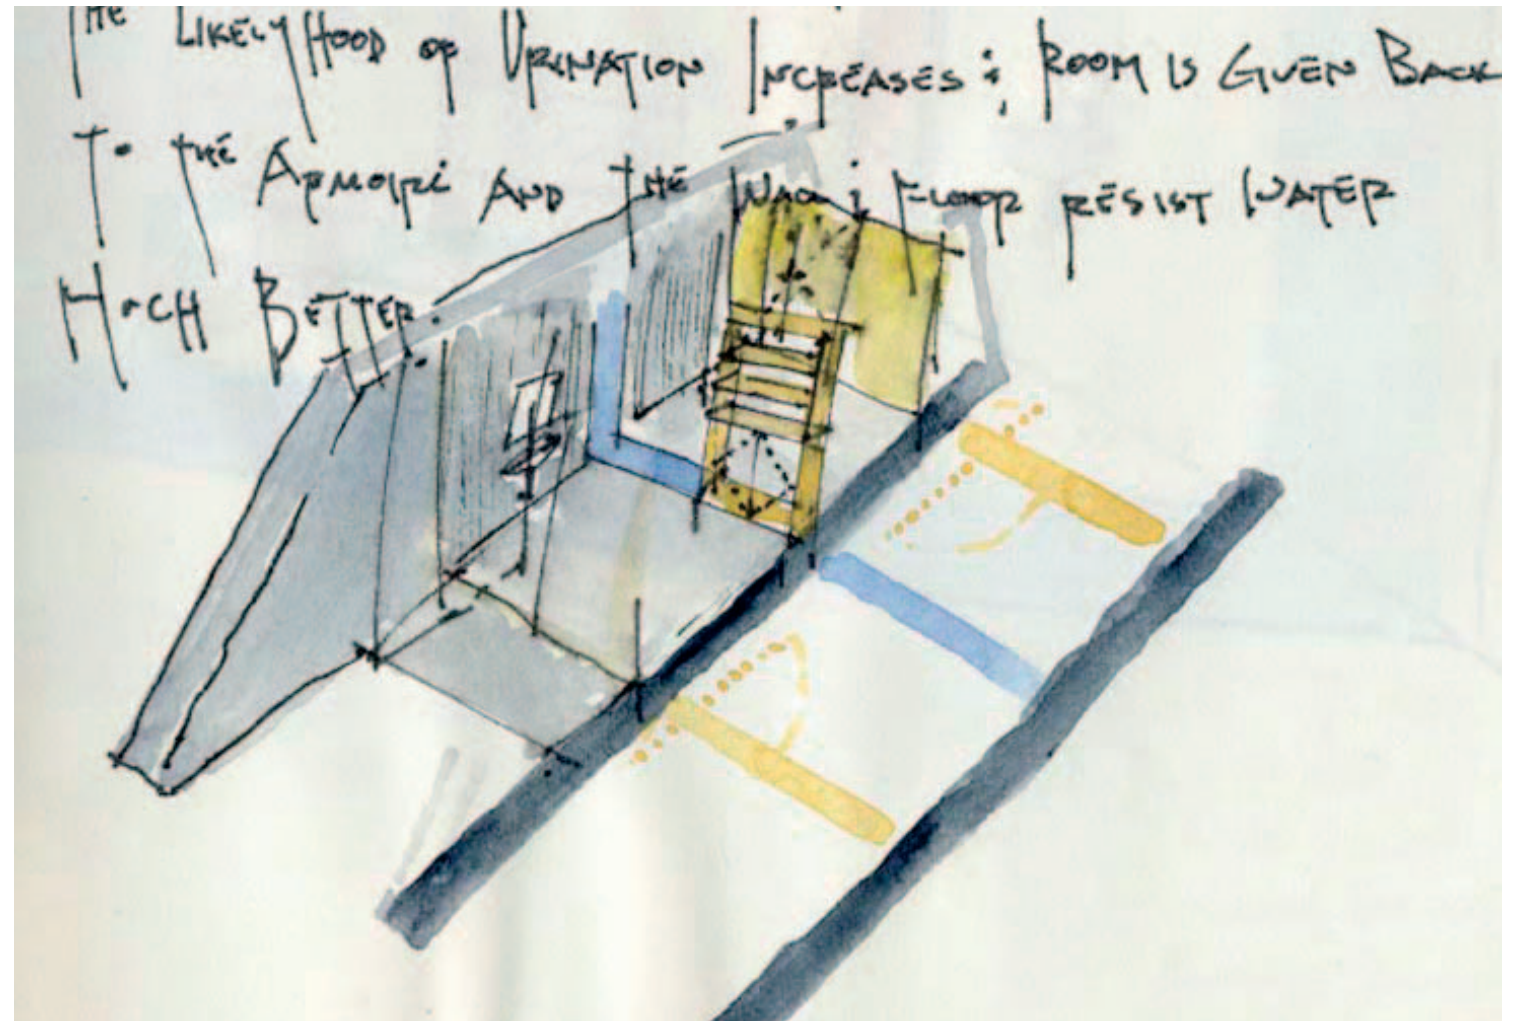 THE LIKELYHOOD OF URINATION INCREASES; ROOM IS GIVEN BACK
TO THE ARMOIRE AND THE WALL; FLOOR RESIST WATER
MUCH BETTER.